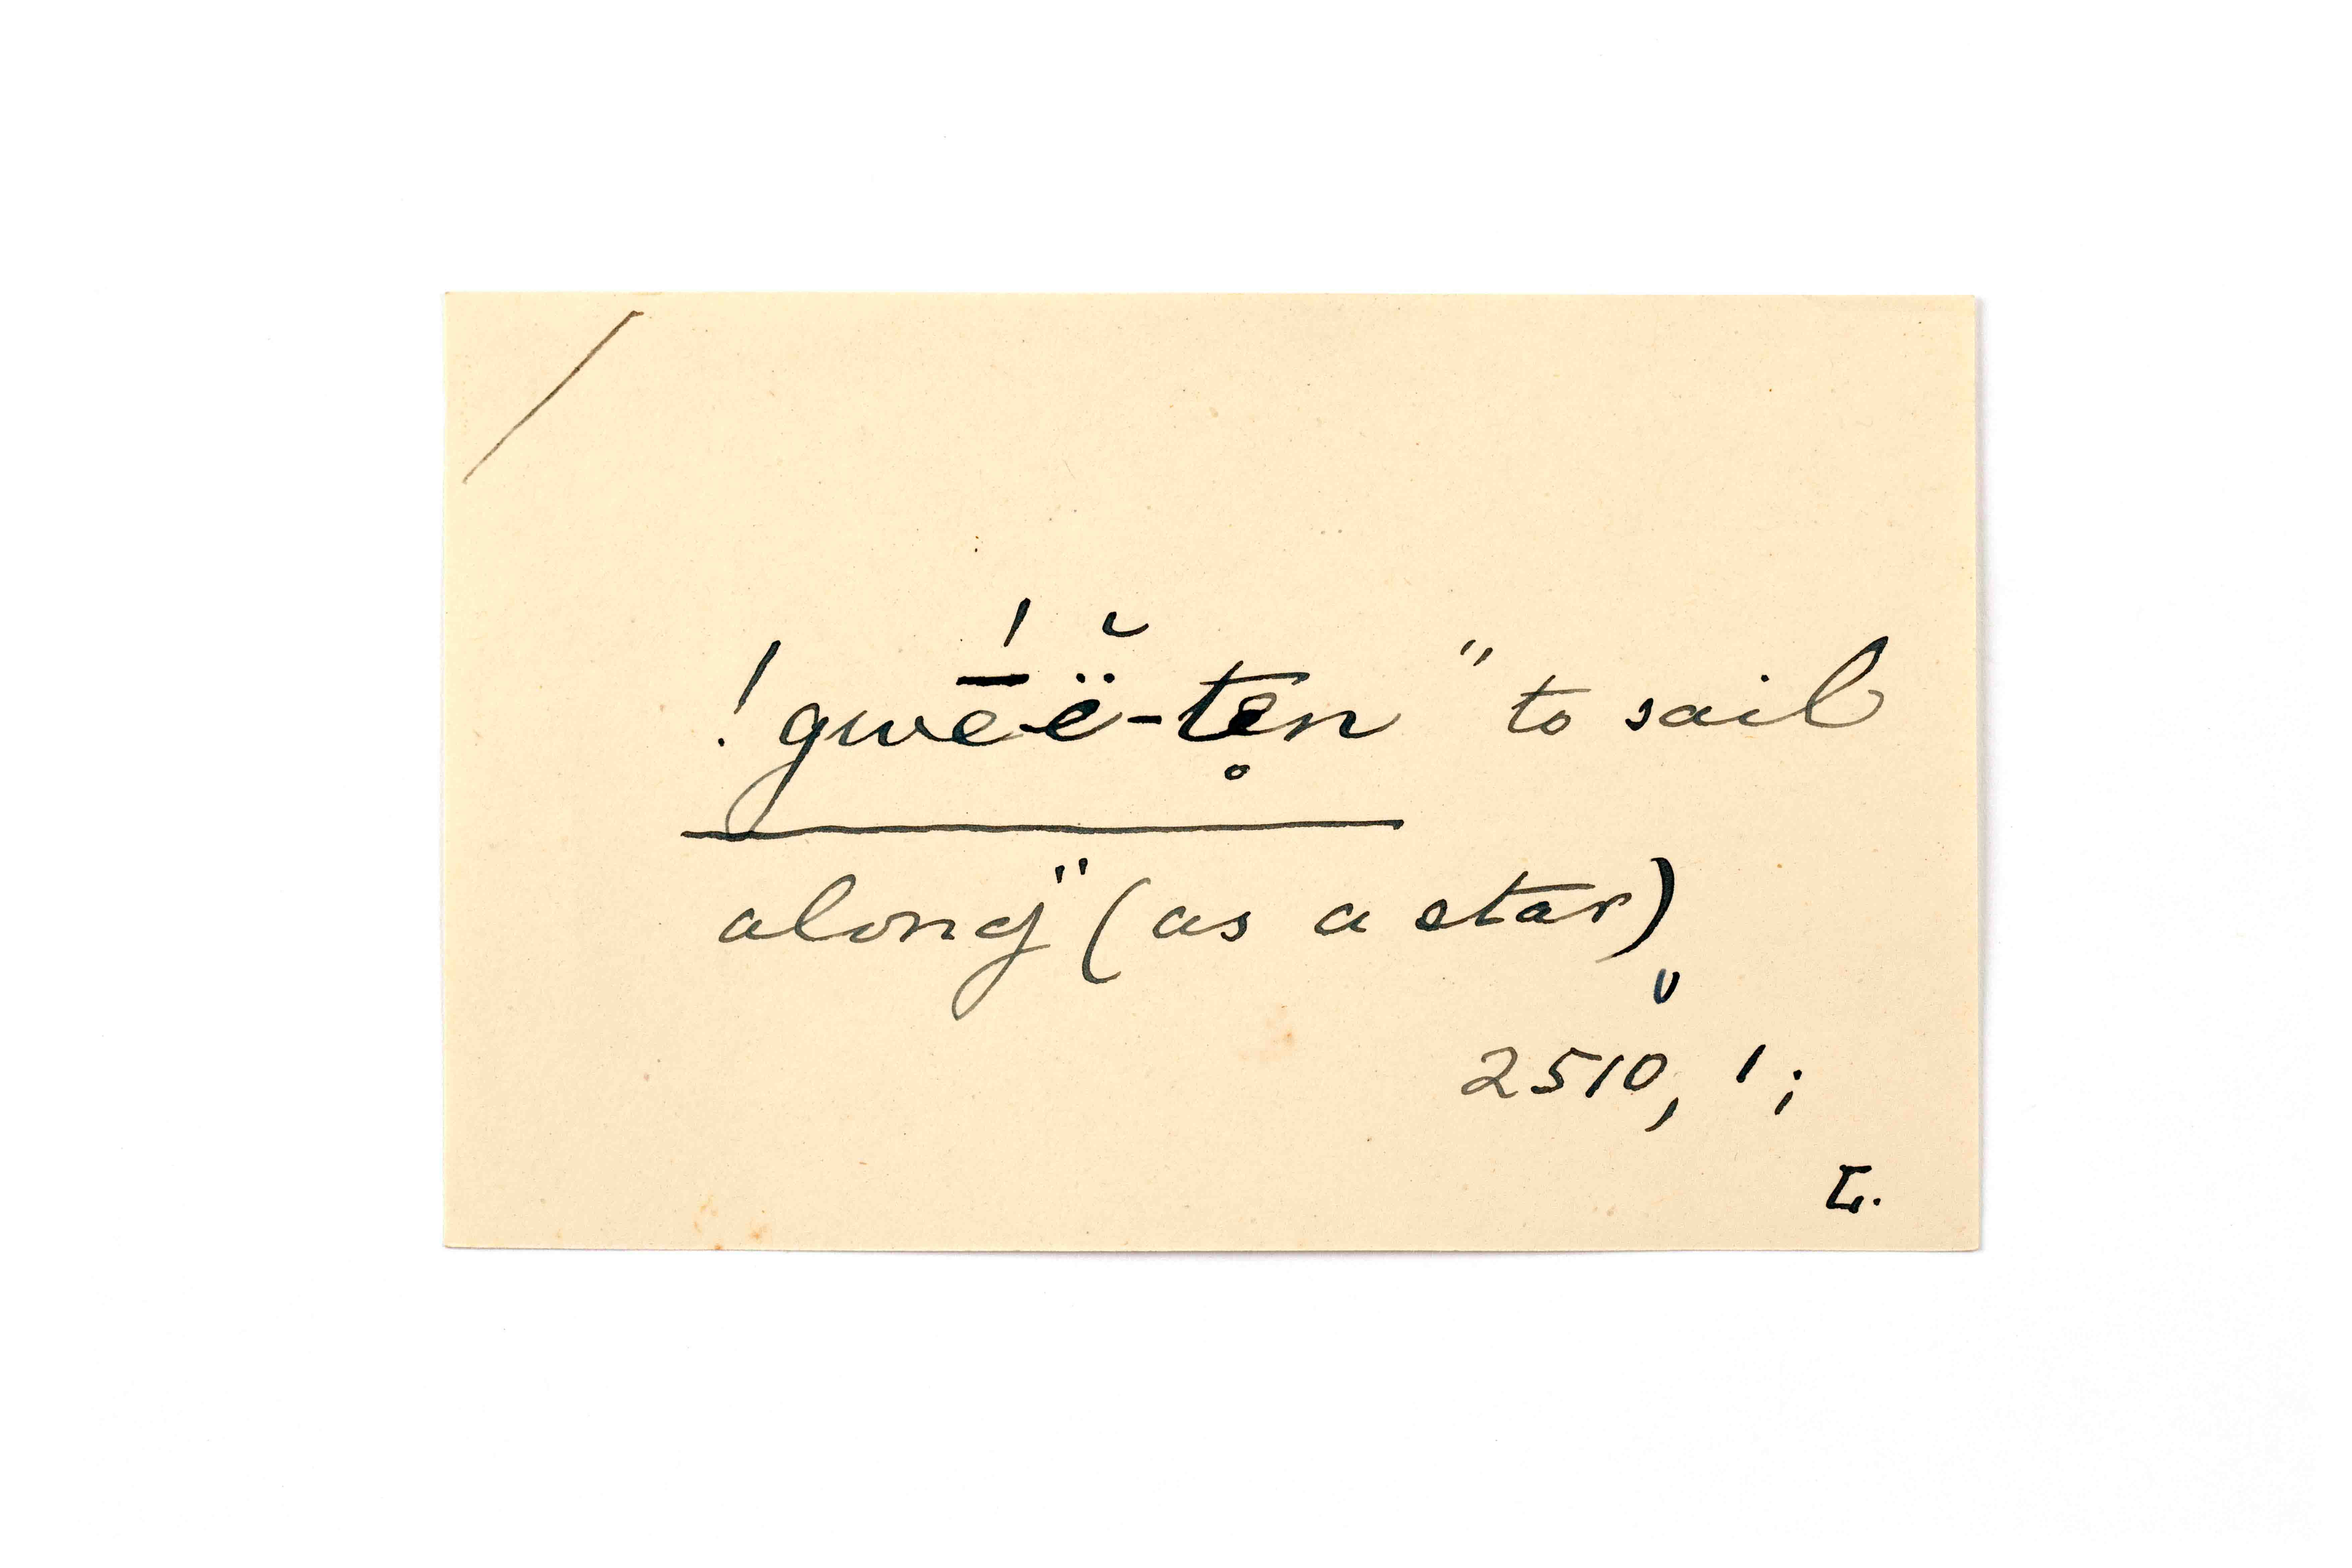 /
!gwḗë̆-te̥n "to sail
along" (as a star)
2510, 1;
L.